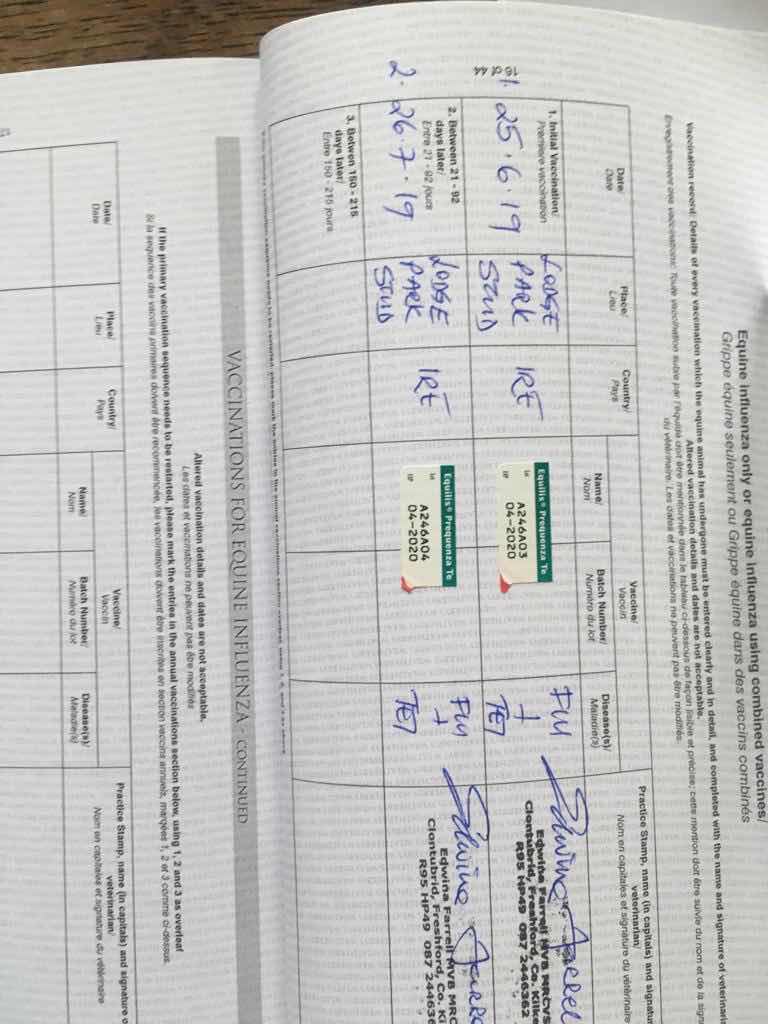 Equine influenza only or equine influenza using combined vaccines/
Grippe équine seulement ou Grippe équine dans des vaccins combinés
Vaccination record: Details of every vaccination which the equine animal has undergone must be entered clearly and in detail, and completed with the name and signature of
Altered vaccination details and dates are not acceptable.
Enregistrement des vaccinations: Toute vaccination subie par l'équidé doit être mentionnée dans le tableau ci-dessous de façon lisible et précise; cette mention doit être suivie du nom et de la
du vétérinaire. Les dates et vaccinations ne peuvent pas être modifiés.
Date/
Date
Place/
Lieu
Country/
Pays
Vaccine/
Vaccin
Name/
Nom
Batch Number/
Numéro du lot
Disease(s)/
Maladie(s)
Practice Stamp, name (in capitals) and
veterinarian/
Nom en capitales et signature du vétérinaire
1. Initial Vaccination/
Première vaccination
1. 25.6.19
LODGE
PARK
STUD
IRE
Equilis® Prequenza Te
A246A03
04-2020
FLU
+
TET
Edwina Farrell MVB MRCVS
Clontubrid, Freshford, Co.
R95 HP49 087 2446362
2. Between 21 - 92
days later/
Entre 21 - 92 jours
2. 26.7.19
LODGE
PARK
STUD
IRE
Equilis® Prequenza Te
A246A04
04-2020
FLU
+
TET
Edwina Farrell MVB
Clontubrid, Freshford, Co.
R95 HP49 087
3. Betwen 150 - 215
days later/
Entre 150 - 215 jours
16 of 44
VACCINATIONS FOR EQUINE INFLUENZA - CONTINUED
Altered vaccination details and dates are not acceptable.
Les dates et vaccinations ne peuvent pas être modifiés
If the primary vaccination sequence needs to be restarted, please mark the entries in the annual vaccinations section below, using 1, 2 and 3 as overleaf
Si la sequence des vaccins primaires doivent être recommencée, les vaccinations doivent être inscrites en section vaccins annuels, marqées 1, 2 et 3 comme ci-dessus.
Date/
Date
Place/
Lieu
Country/
Pays
Vaccine/
Vaccin
Name/
Nom
Batch Number/
Numéro du lot
Disease(s)/
Maladie(s)
Practice Stamp, name (in capitals) and signature
veterinarian/
Nom en capitales et signature du vétérinaire